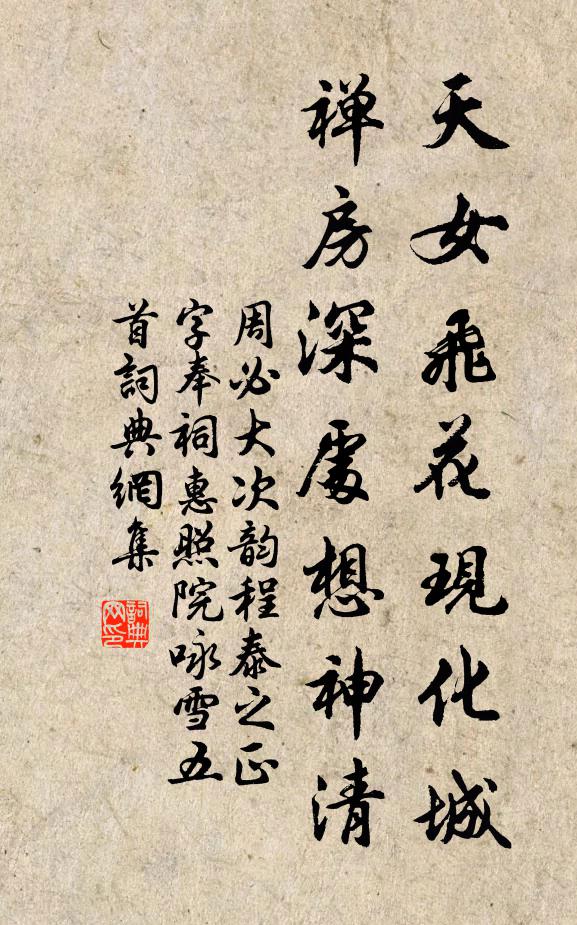 天女飛花現化城
禅房深處想神清
周必大次韵程泰之正
字奉祠惠照院咏雪五
首詞典網集
詞典
网印